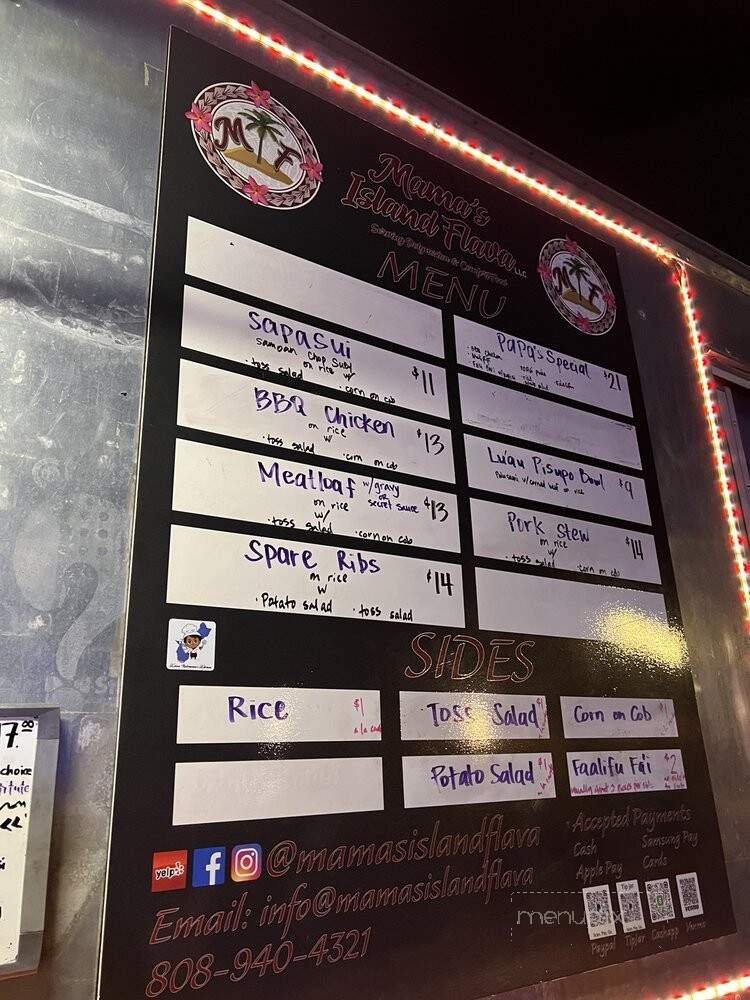 MTF
Mama's
Island Flava LLC
Serving Polynesian & Comfort Food
MENU
MTF
Sapasui
Samoan Chop Suey
on rice w/
· toss salad · corn on cob
$11
BBQ Chicken
on rice
w/
· toss salad · corn on cob
$13
Meatloaf w/gravy
or
secret sauce
on rice
w/
· toss salad · corn on cob
$13
Spare Ribs
on rice
w
· Potato salad · toss salad
$14
Papa's Special
$21
Lu'au Pisupo Bowl
Palusami w/corned beef on rice
$9
Pork Stew
on rice
w/
· toss salad · corn on cob
$14
SIDES
Rice
$1
a la carte
Toss Salad
$1
Corn on Cob
Potato Salad
$1
Faalifu Fa'i
$2
yelp
@mamasislandflava
Email: info@mamasislandflava
808-940-4321
Accepted Payments
Cash Samsung Pay
Apple Pay Cards
Paypal TipJar Cashapp Venmo
Tip Jar
menupix
17.00
choice